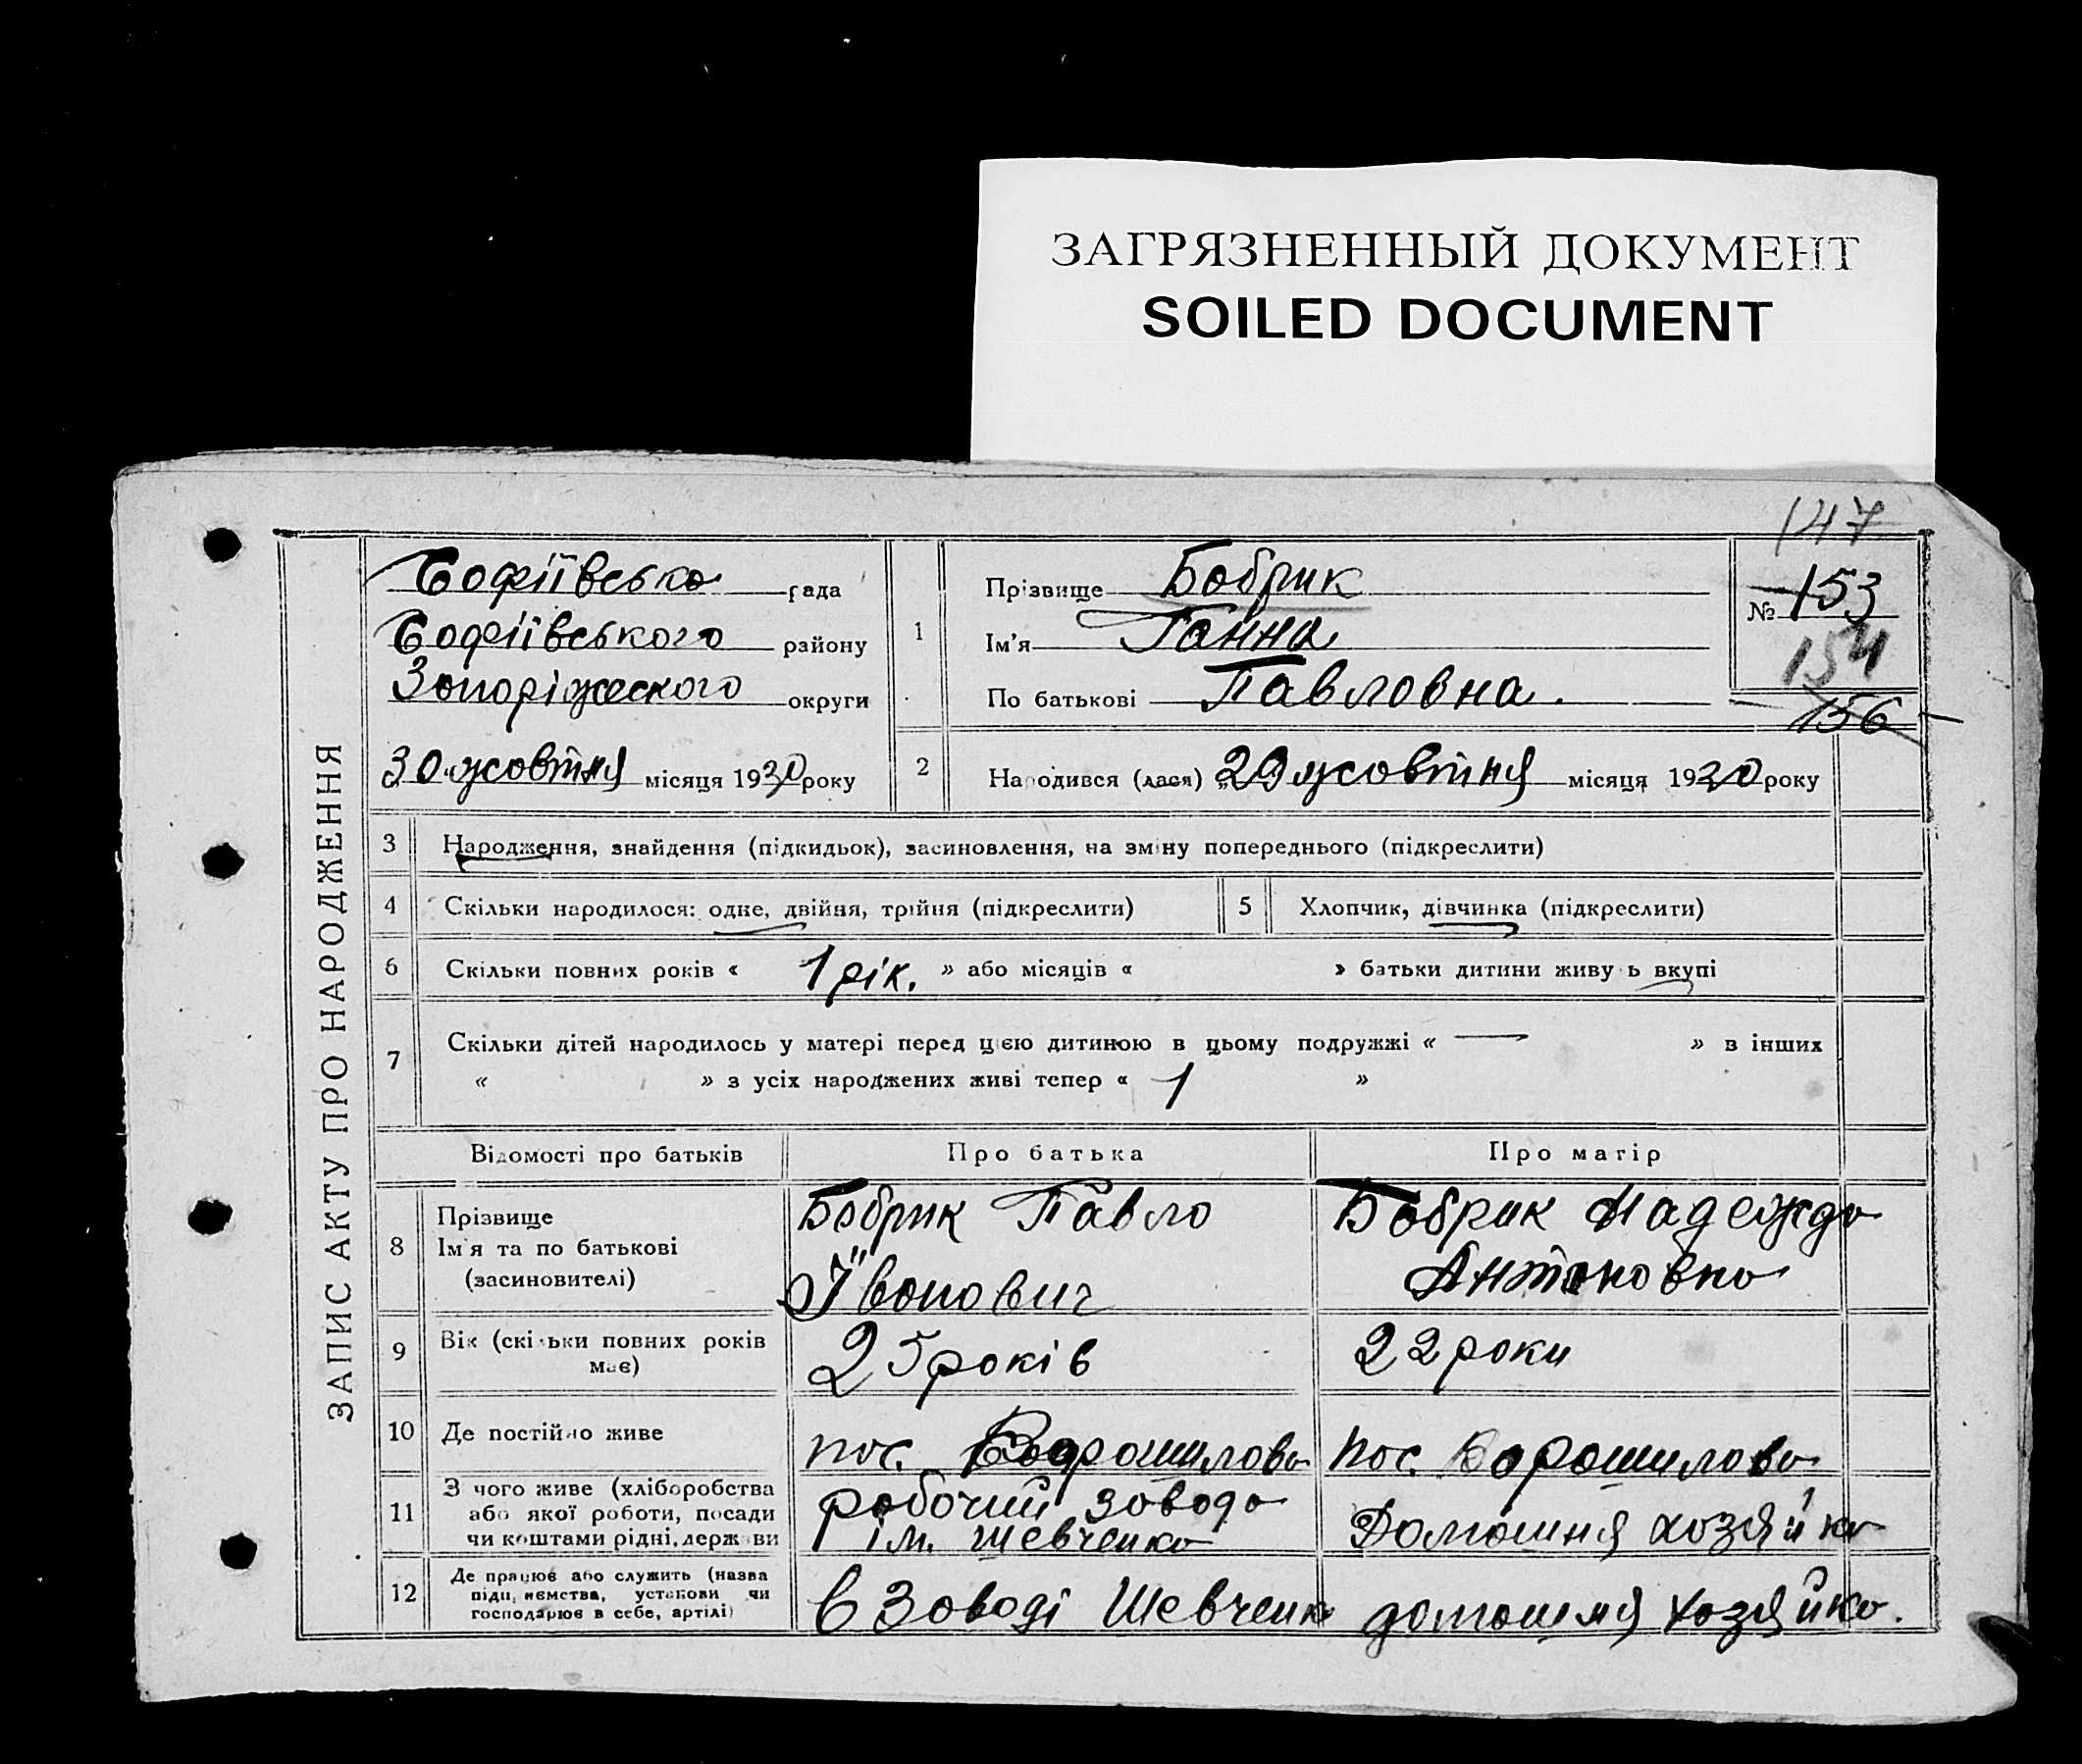 ЗАГРЯЗНЕННЫЙ ДОКУМЕНТ
SOILED DOCUMENT
147
ЗАПИС АКТУ ПРО НАРОДЖЕННЯ
Софіївська рада
Софіївського району
Запоріжського округи
30 жовтня місяця 1930 року
1
Прізвище Бобрик
Ім'я Ганна
По батькові Павловна.
№ 153
154
156
2 Народився (лася) 29 жовтня місяця 1930 року
3 Народження, знайдення (підкидьок), засиновлення, на зміну попереднього (підкреслити)
4 Скільки народилося: одне, двійня, трійня (підкреслити) 5 Хлопчик, дівчинка (підкреслити)
6 Скільки повних років « 1 рік. » або місяців « » батьки дитини живуть вкупі
7 Скільки дітей народилось у матері перед цією дитиною в цьому подружжі « — » в інших
« » з усіх народжених живі тепер « 1 »
Відомості про батьків Про батька Про матір
8 Прізвище Ім'я та по батькові (засиновителі)
Бобрик Павло
Іванович
Бобрик Надежда
Антоновна
9 Вік (скільки повних років має) 25 років 22 роки
10 Де постійно живе пос. Ворошилова пос. Ворошилова
11 З чого живе (хліборобства
або якої роботи, посади
чи коштами рідні, держави
робочий завода
ім. Шевченка
Домашня хозяйка
12 Де працює або служить (назва
підприємства, установи чи
господарює в себе, артілі)
в Заводі Шевченк домашня хозяйка.